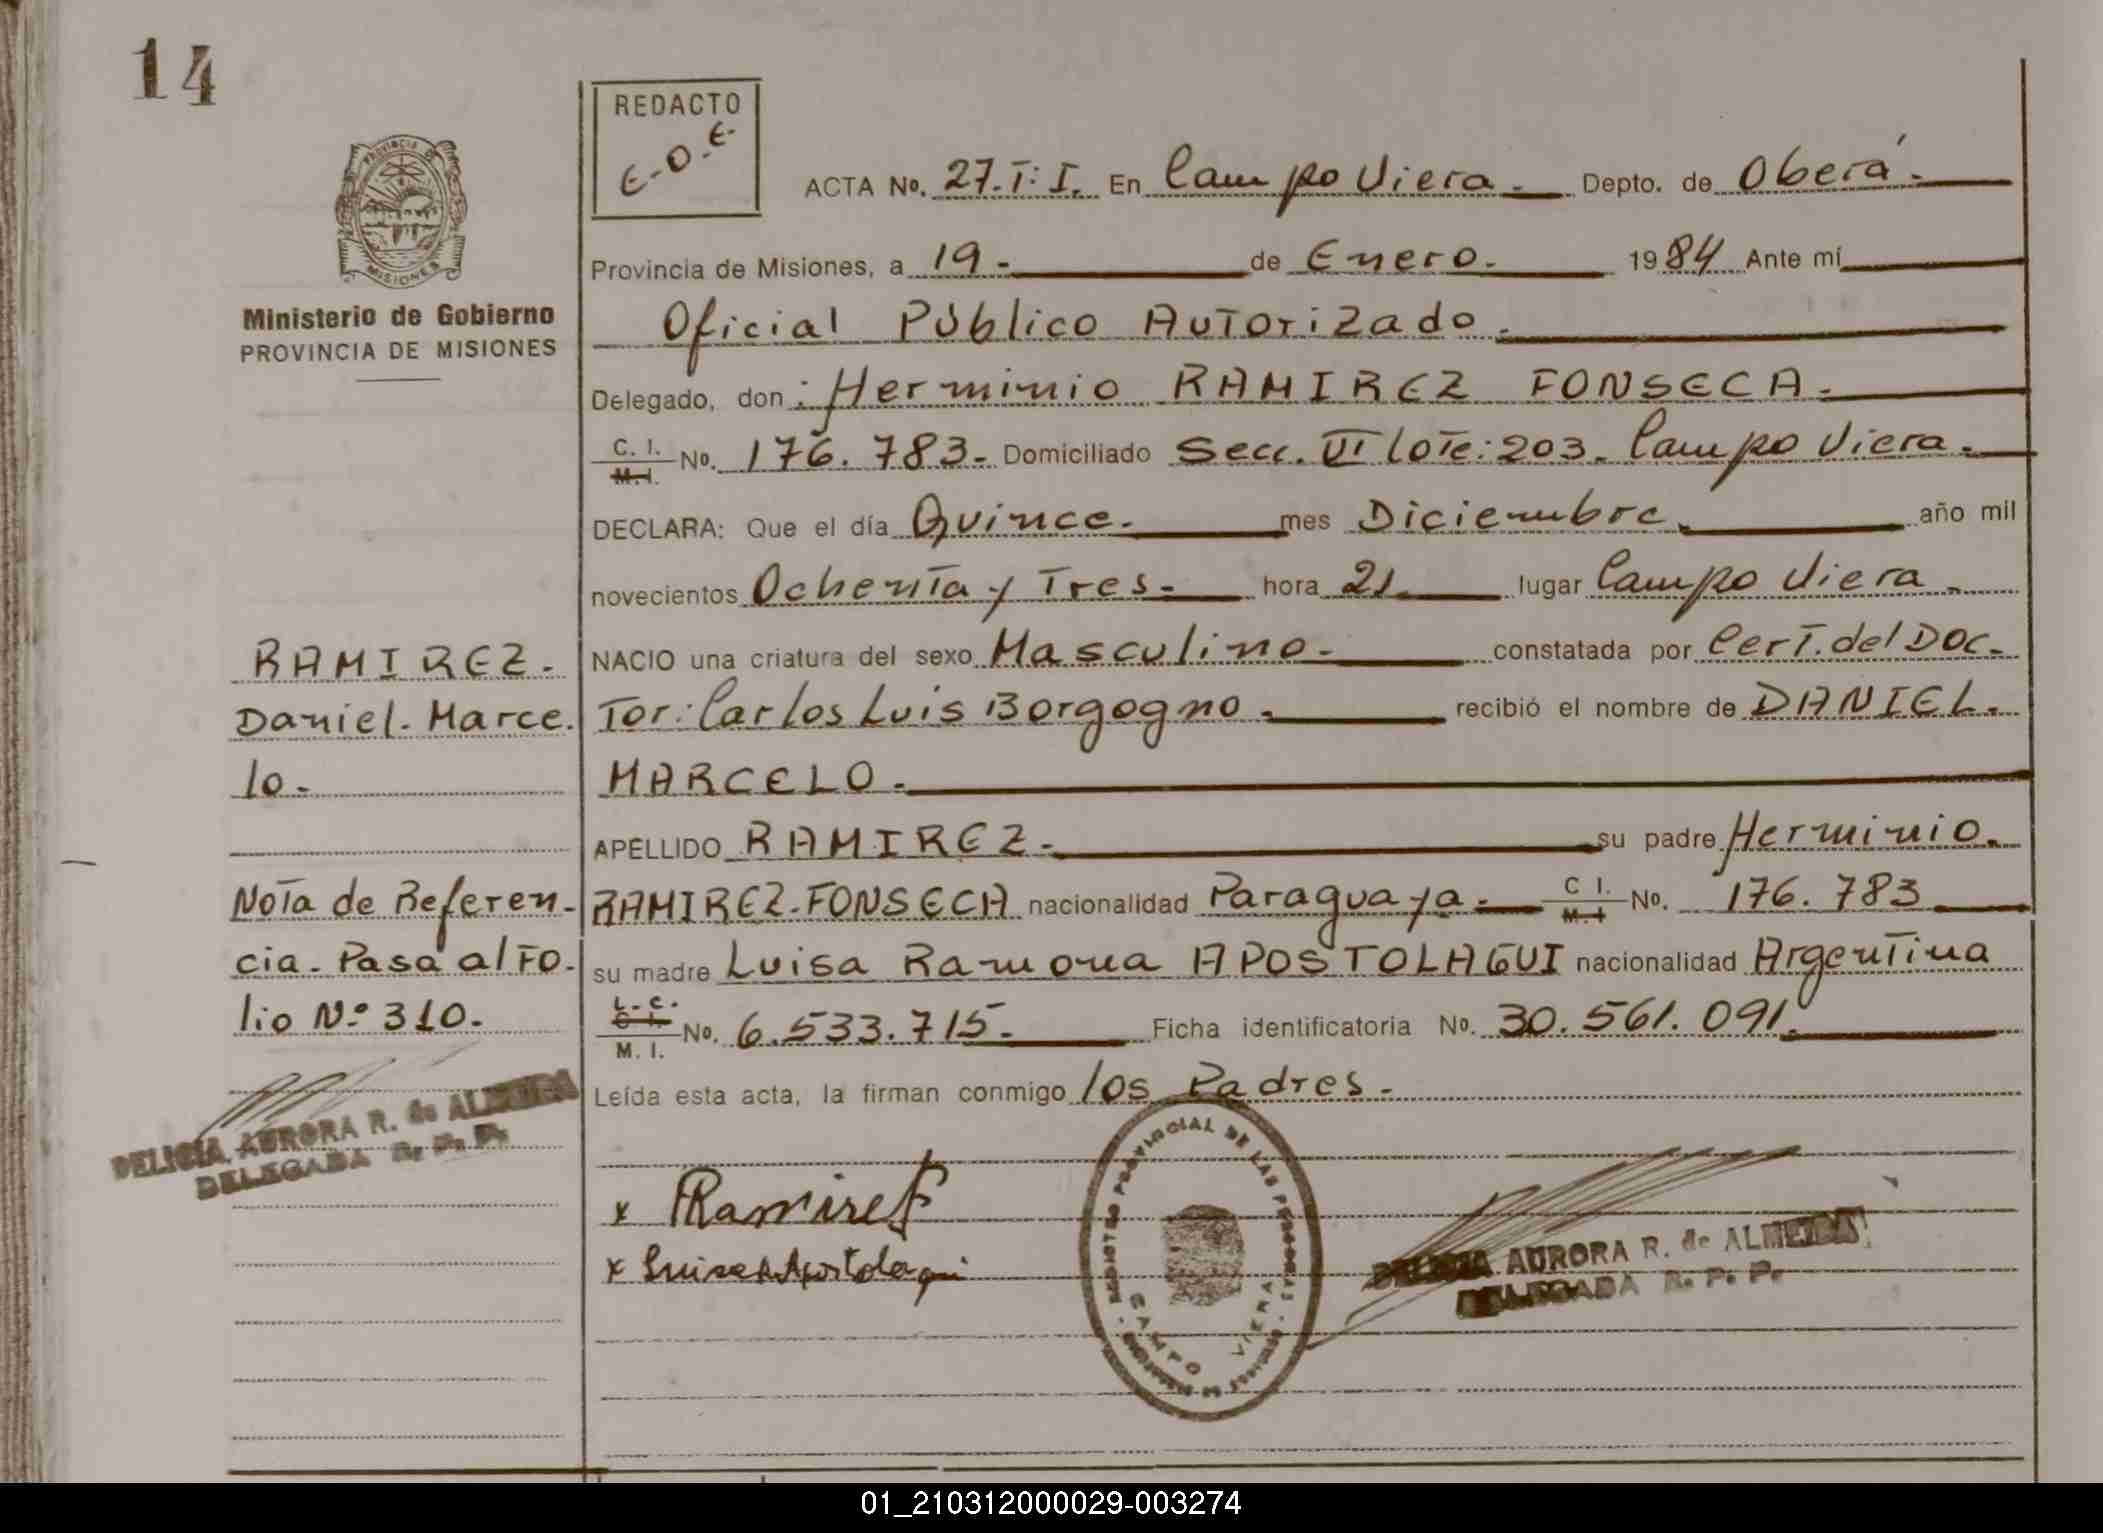 14
REDACTO
E.O.E.
ACTA No. 27.T:I. En Campo Viera.- Depto. de Oberá.-
Provincia de Misiones, a 19.- de Enero.- 1984 Ante mí
Oficial Público Autorizado.-
Ministerio de Gobierno
PROVINCIA DE MISIONES
Delegado, don: Herminio RAMIREZ FONSECA.-
C. I. M. I. No. 176.783.- Domiciliado Secc. VI lote: 203.- Campo Viera.-
DECLARA: Que el día Quince.- mes Diciembre.- año mil
novecientos Ochenta y Tres.- hora 21 lugar Campo Viera.-
NACIO una criatura del sexo Masculino.- constatada por Cert. del Doc-
tor: Carlos Luis Borgogno.- recibió el nombre de DANIEL.
MARCELO.-
APELLIDO RAMIREZ.- su padre Herminio.
RAMIREZ.FONSECA nacionalidad Paraguaya.- C I. M. I No. 176.783
su madre Luisa Ramona APOSTOLAGUI nacionalidad Argentina
L.C. C. I. M. I. No. 6.533.715.- Ficha identificatoria No. 30.561.091.
Leída esta acta, la firman conmigo los Padres.-
RAMIREZ.-
Daniel. Marce.
lo.-
Nota de Referen-
cia. Pasa al FO-
lio Nº 310.-
DELICIA AURORA R. de ALMEIDA
DELEGADA R. P. P.
x Ramirez
x Luisa R Apostolagui
PROVINCIAL DE LAS PERSONAS
CAMPO VIERA
MISIONES
DELICIA AURORA R. de ALMEIDA
DELEGADA R. P. P.
01_210312000029-003274